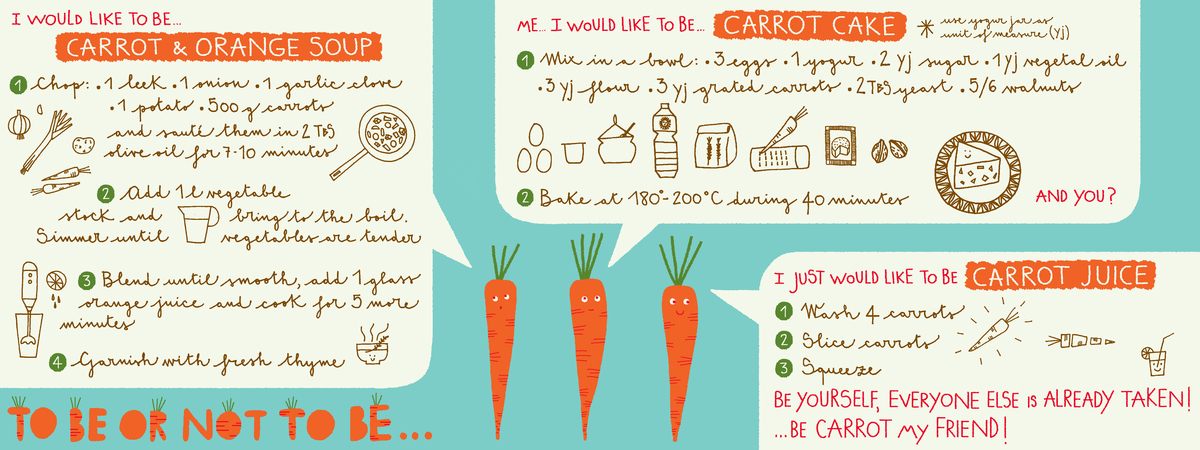 I WOULD LIKE TO BE...
CARROT & ORANGE SOUP
1 Chop: • 1 leek • 1 onion • 1 garlic clove
• 1 potato • 500 g carrots
and sauté them in 2 TBS
olive oil for 7-10 minutes
2 Add 1 l vegetable
stock and bring to the boil.
Simmer until vegetables are tender
3 Blend until smooth, add 1 glass
orange juice and cook for 5 more
minutes
4 Garnish with fresh thyme
TO BE OR NOT TO BE...
ME... I WOULD LIKE TO BE... CARROT CAKE
* use yogur jar as
unit of measure (yj)
1 Mix in a bowl: • 3 eggs • 1 yogur • 2 yj sugar • 1 yj vegetal oil
• 3 yj flour • 3 yj grated carrots • 2 TBS yeast • 5/6 walnuts
2 Bake at 180°-200°C during 40 minutes
AND YOU?
I JUST WOULD LIKE TO BE CARROT JUICE
1 Wash 4 carrots
2 Slice carrots
3 Squeeze
BE YOURSELF, EVERYONE ELSE IS ALREADY TAKEN!
...BE CARROT MY FRIEND!